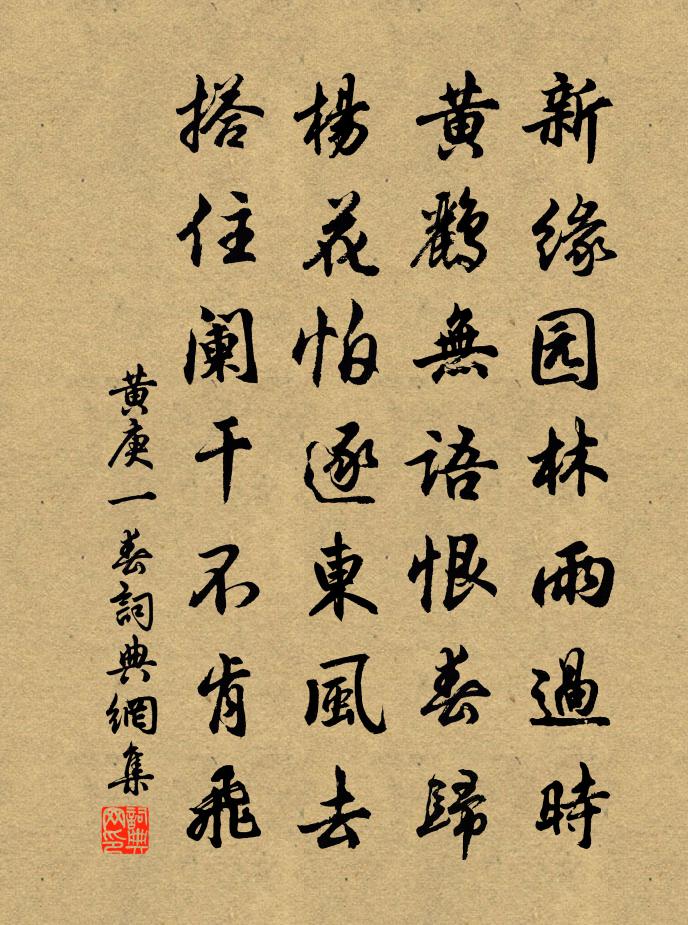 新缘园林雨過時
黄鸝無語恨春歸
楊花怕逐東風去
搭住阑干不肯飛
黄庚一春詞典網集
詞典网印